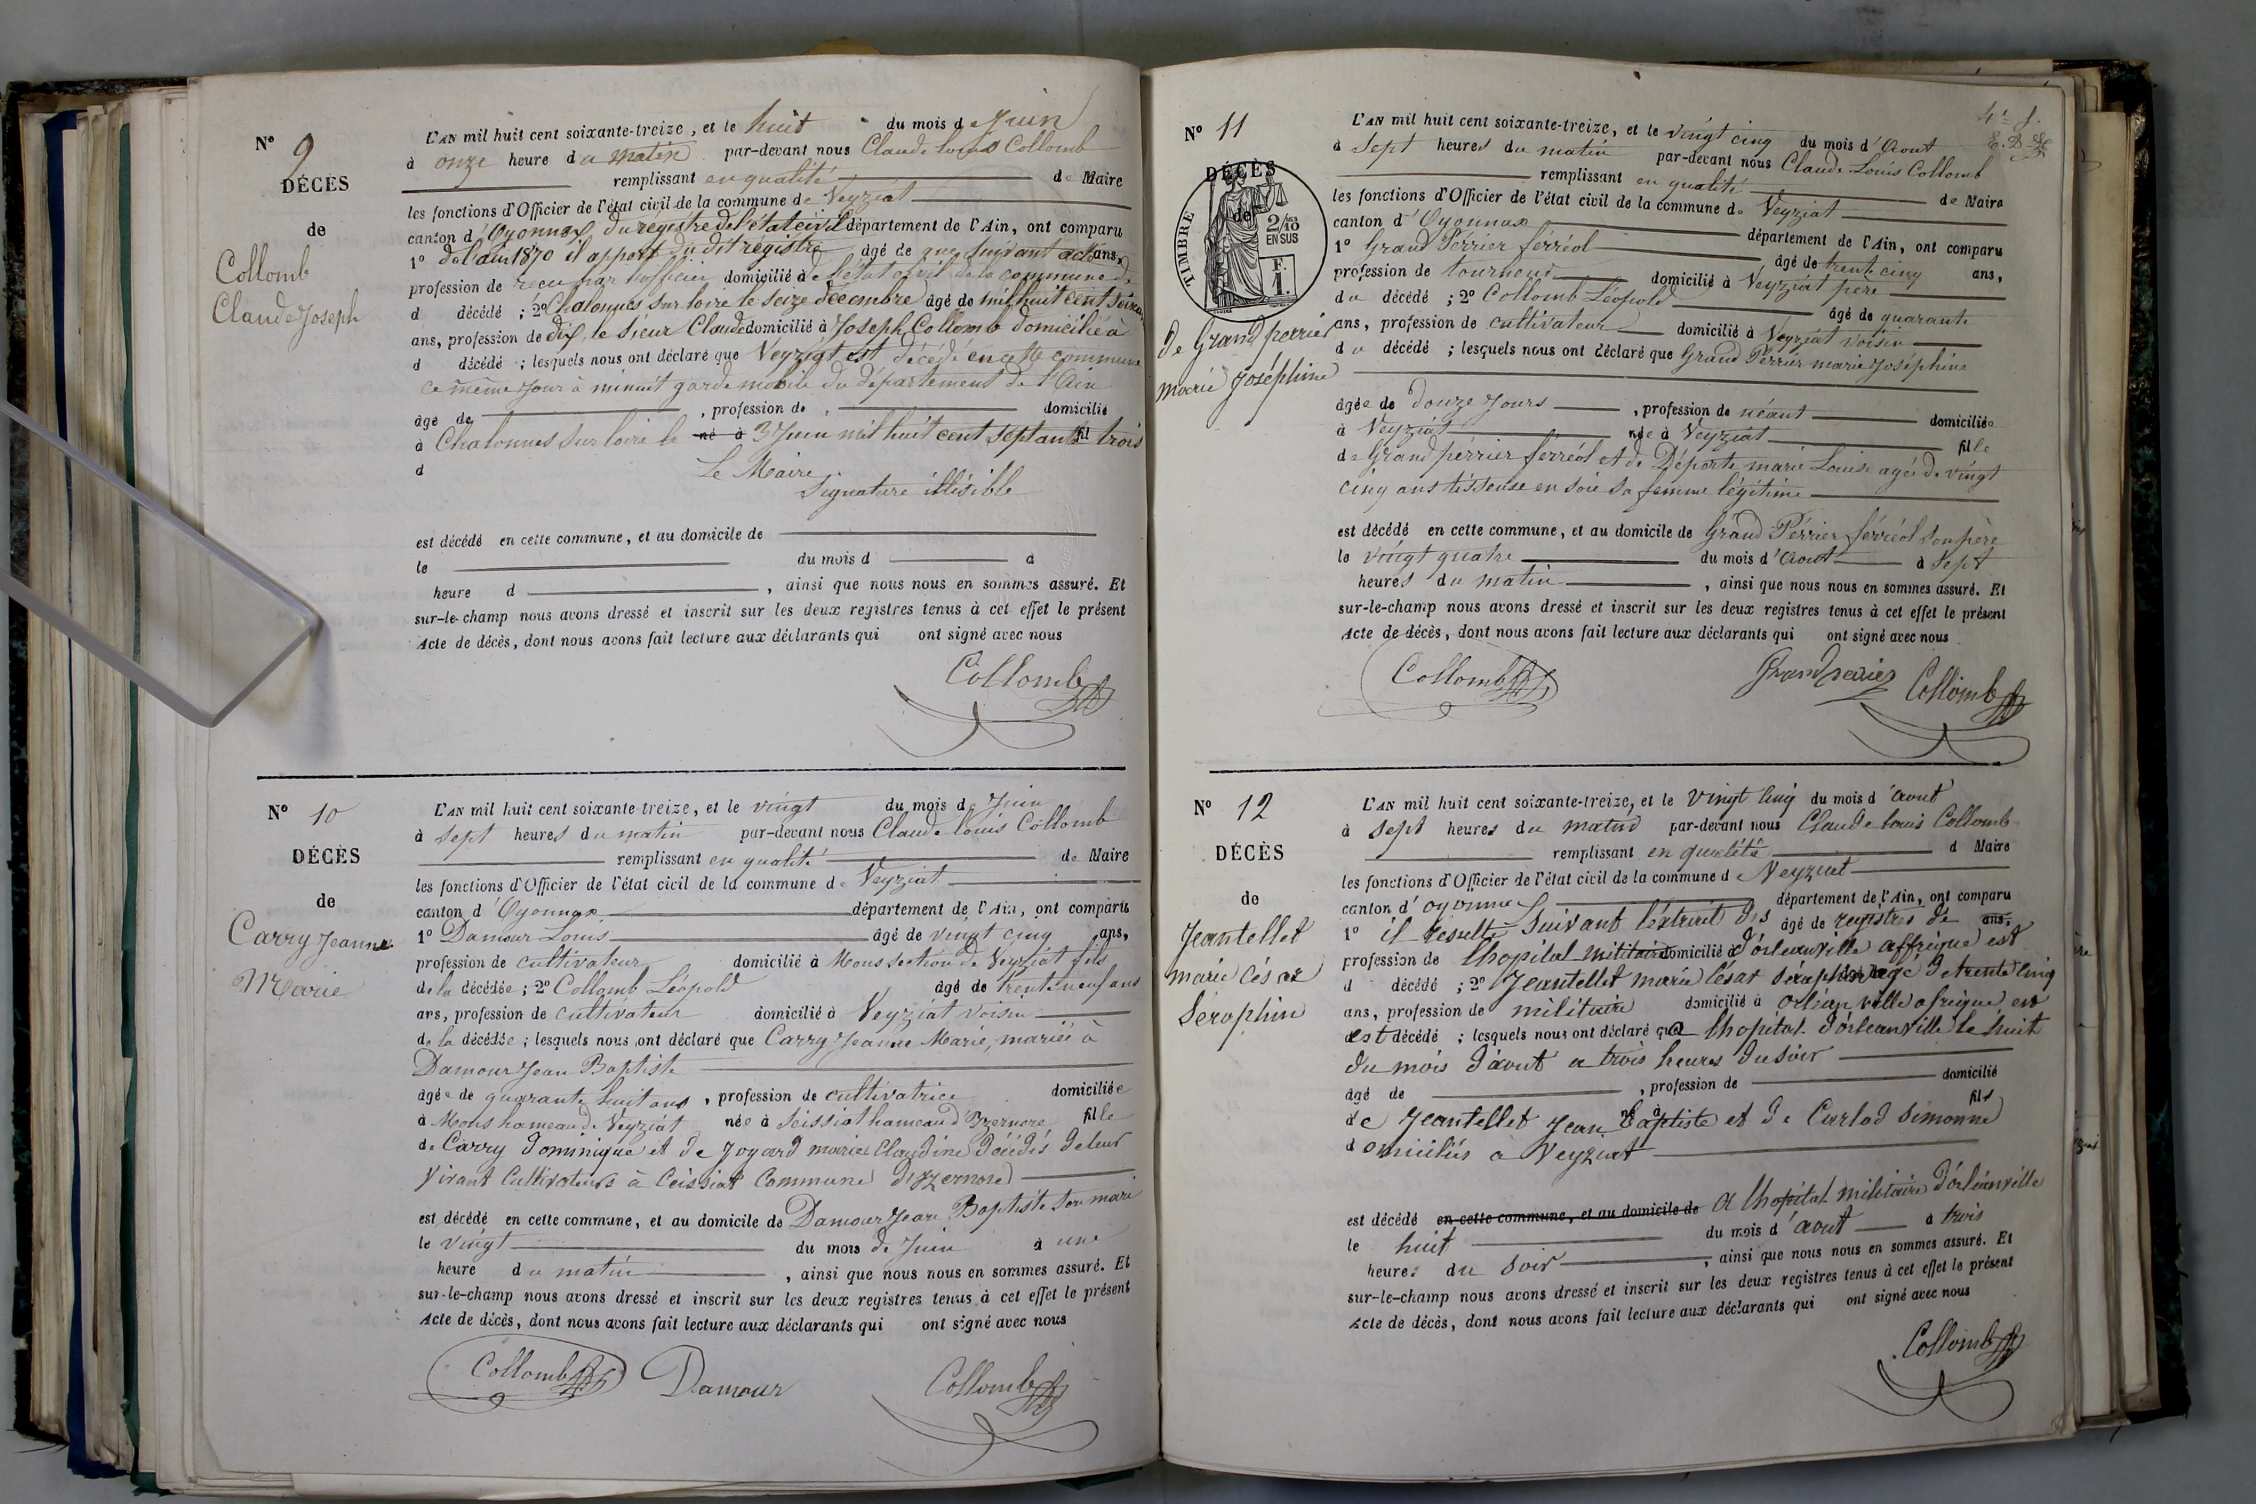 N° 9
DÉCÈS
de
Collomb
Claude Joseph
L'AN mil huit cent soixante-treize, et le huit du mois de Juin
à onze heure du matin par-devant nous Claude Louis Collomb
remplissant en qualité de Maire
les fonctions d'Officier de l'état civil de la commune de Veyziat
canton d'Oyonnax, du régistre de l'état civil département de l'Ain, ont comparu
1° de l'an 1870 il appert du dit régistre âgé de que suivant acte ans,
profession de recu par l'officier domicilié à de l'état civil de la commune de
d décédé ; 2° Chalonnes sur loire le seize décembre âgé de mil huit cent soixante
ans, profession de dix, le sieur Claude domicilié à Joseph Collomb domicilié à
d décédé ; lesquels nous ont déclaré que Veyziat est décédé en cette commune
ce même jour à minuit garde mobile du département de l'Ain
âgé de , profession de , domicilié
à Chalonnes sur loire le né à 3 Juin mil huit cent septante fil trois
d Le Maire
Signature illisible
est décédé en cette commune, et au domicile de
le du mois d à
heure d , ainsi que nous nous en sommes assuré. Et
sur-le-champ nous avons dressé et inscrit sur les deux registres tenus à cet effet le présent
Acte de décès, dont nous avons fait lecture aux déclarants qui ont signé avec nous
Collomb
N° 10
DÉCÈS
de
Carry Jeanne
Marie
L'AN mil huit cent soixante-treize, et le vingt du mois de Juin
à sept heures du matin par-devant nous Claude Louis Collomb
remplissant en qualité de Maire
les fonctions d'Officier de l'état civil de la commune de Veyziat
canton d'Oyonnax département de l'Ain, ont comparu
1° Damour Louis âgé de vingt cinq ans,
profession de cultivateur domicilié à Mons section de Veyziat fils
de la décédée ; 2° Collomb Léopold âgé de trente neuf ans
ans, profession de cultivateur domicilié à Veyziat voisin
de la décédée ; lesquels nous ont déclaré que Carry Jeanne Marie, mariée à
Damour Jean Baptiste
âgée de quarante huit ans , profession de cultivatrice domiciliée
à Mons hameau de Veyziat née à Seissiat hameau d'Izernore fille
de Carry Dominique et de Joyard marie Claudine Décédés de leur
vivant Cultivateurs à Ceissiat Commune d'Izernore
est décédé en cette commune, et au domicile de Damour Jean Baptiste son mari
le vingt du mois de Juin à une
heure du matin , ainsi que nous nous en sommes assuré. Et
sur-le-champ nous avons dressé et inscrit sur les deux registres tenus à cet effet le présent
Acte de décès, dont nous avons fait lecture aux déclarants qui ont signé avec nous
Collomb Damour Collomb
N° 11
DÉCÈS
de
TIMBRE
2/10
EN SUS
F.
1.
de Grand perrier
marie Joséphine
L'AN mil huit cent soixante-treize, et le vingt cinq du mois d'Aout
à sept heures du matin par-devant nous Claude Louis Collomb
remplissant en qualité de Maire
les fonctions d'Officier de l'état civil de la commune de Veyziat
canton d'Oyonnax département de l'Ain, ont comparu
1° Grand Pérrier férréol âgé de trente cinq ans,
profession de tourneur domicilié à Veyziat père
du décédé ; 2° Collomb Léopold âgé de quarante
ans, profession de cultivateur domicilié à Veyziat voisin
du décédé ; lesquels nous ont déclaré que Grand Pérrier marie Joséphine
âgée de douze jours , profession de néant domiciliée
à Veyziat née à Veyziat fille
de Grand pérrier férréol et de Déporte marie Louise agée de vingt
cinq ans tisseuse en soie sa femme légitime
est décédé en cette commune, et au domicile de Grand Pérrier férréol son père
le vingt quatre du mois d'Aout à sept
heures du matin , ainsi que nous nous en sommes assuré. Et
sur-le-champ nous avons dressé et inscrit sur les deux registres tenus à cet effet le présent
Acte de décès, dont nous avons fait lecture aux déclarants qui ont signé avec nous
Collomb Grandperrier Collomb
N° 12
DÉCÈS
de
Jeantellet
marie César
Séraphin
L'AN mil huit cent soixante-treize, et le vingt cinq du mois d'aout
à sept heures du matin par-devant nous Claude Louis Collomb
remplissant en qualité d Maire
les fonctions d'Officier de l'état civil de la commune de Veyziat
canton d'oyonnax département de l'Ain, ont comparu
1° il résulte suivant l'éxtrait des âgé de registres de ans,
profession de lhopital militaire domicilié à d'orléanville affrique est
d décédé ; 2° Jeantellet marie César Séraphin agé de trente cinq
ans, profession de militaire domicilié à orléanville afrique est
est décédé ; lesquels nous ont déclaré que a lhopital d'orleanville le huit
du mois d'aout a trois heures du soir
âgé de , profession de domicilié
né à fils
de Jeantellet Jean Baptiste et de Carlod Simonne
domiciliés à Veyziat
est décédé en cette commune, et au domicile de a lhopital militaire d'orléanville
le huit du mois d'aout à trois
heures du soir , ainsi que nous nous en sommes assuré. Et
sur-le-champ nous avons dressé et inscrit sur les deux registres tenus à cet effet le présent
Acte de décès, dont nous avons fait lecture aux déclarants qui ont signé avec nous
Collomb